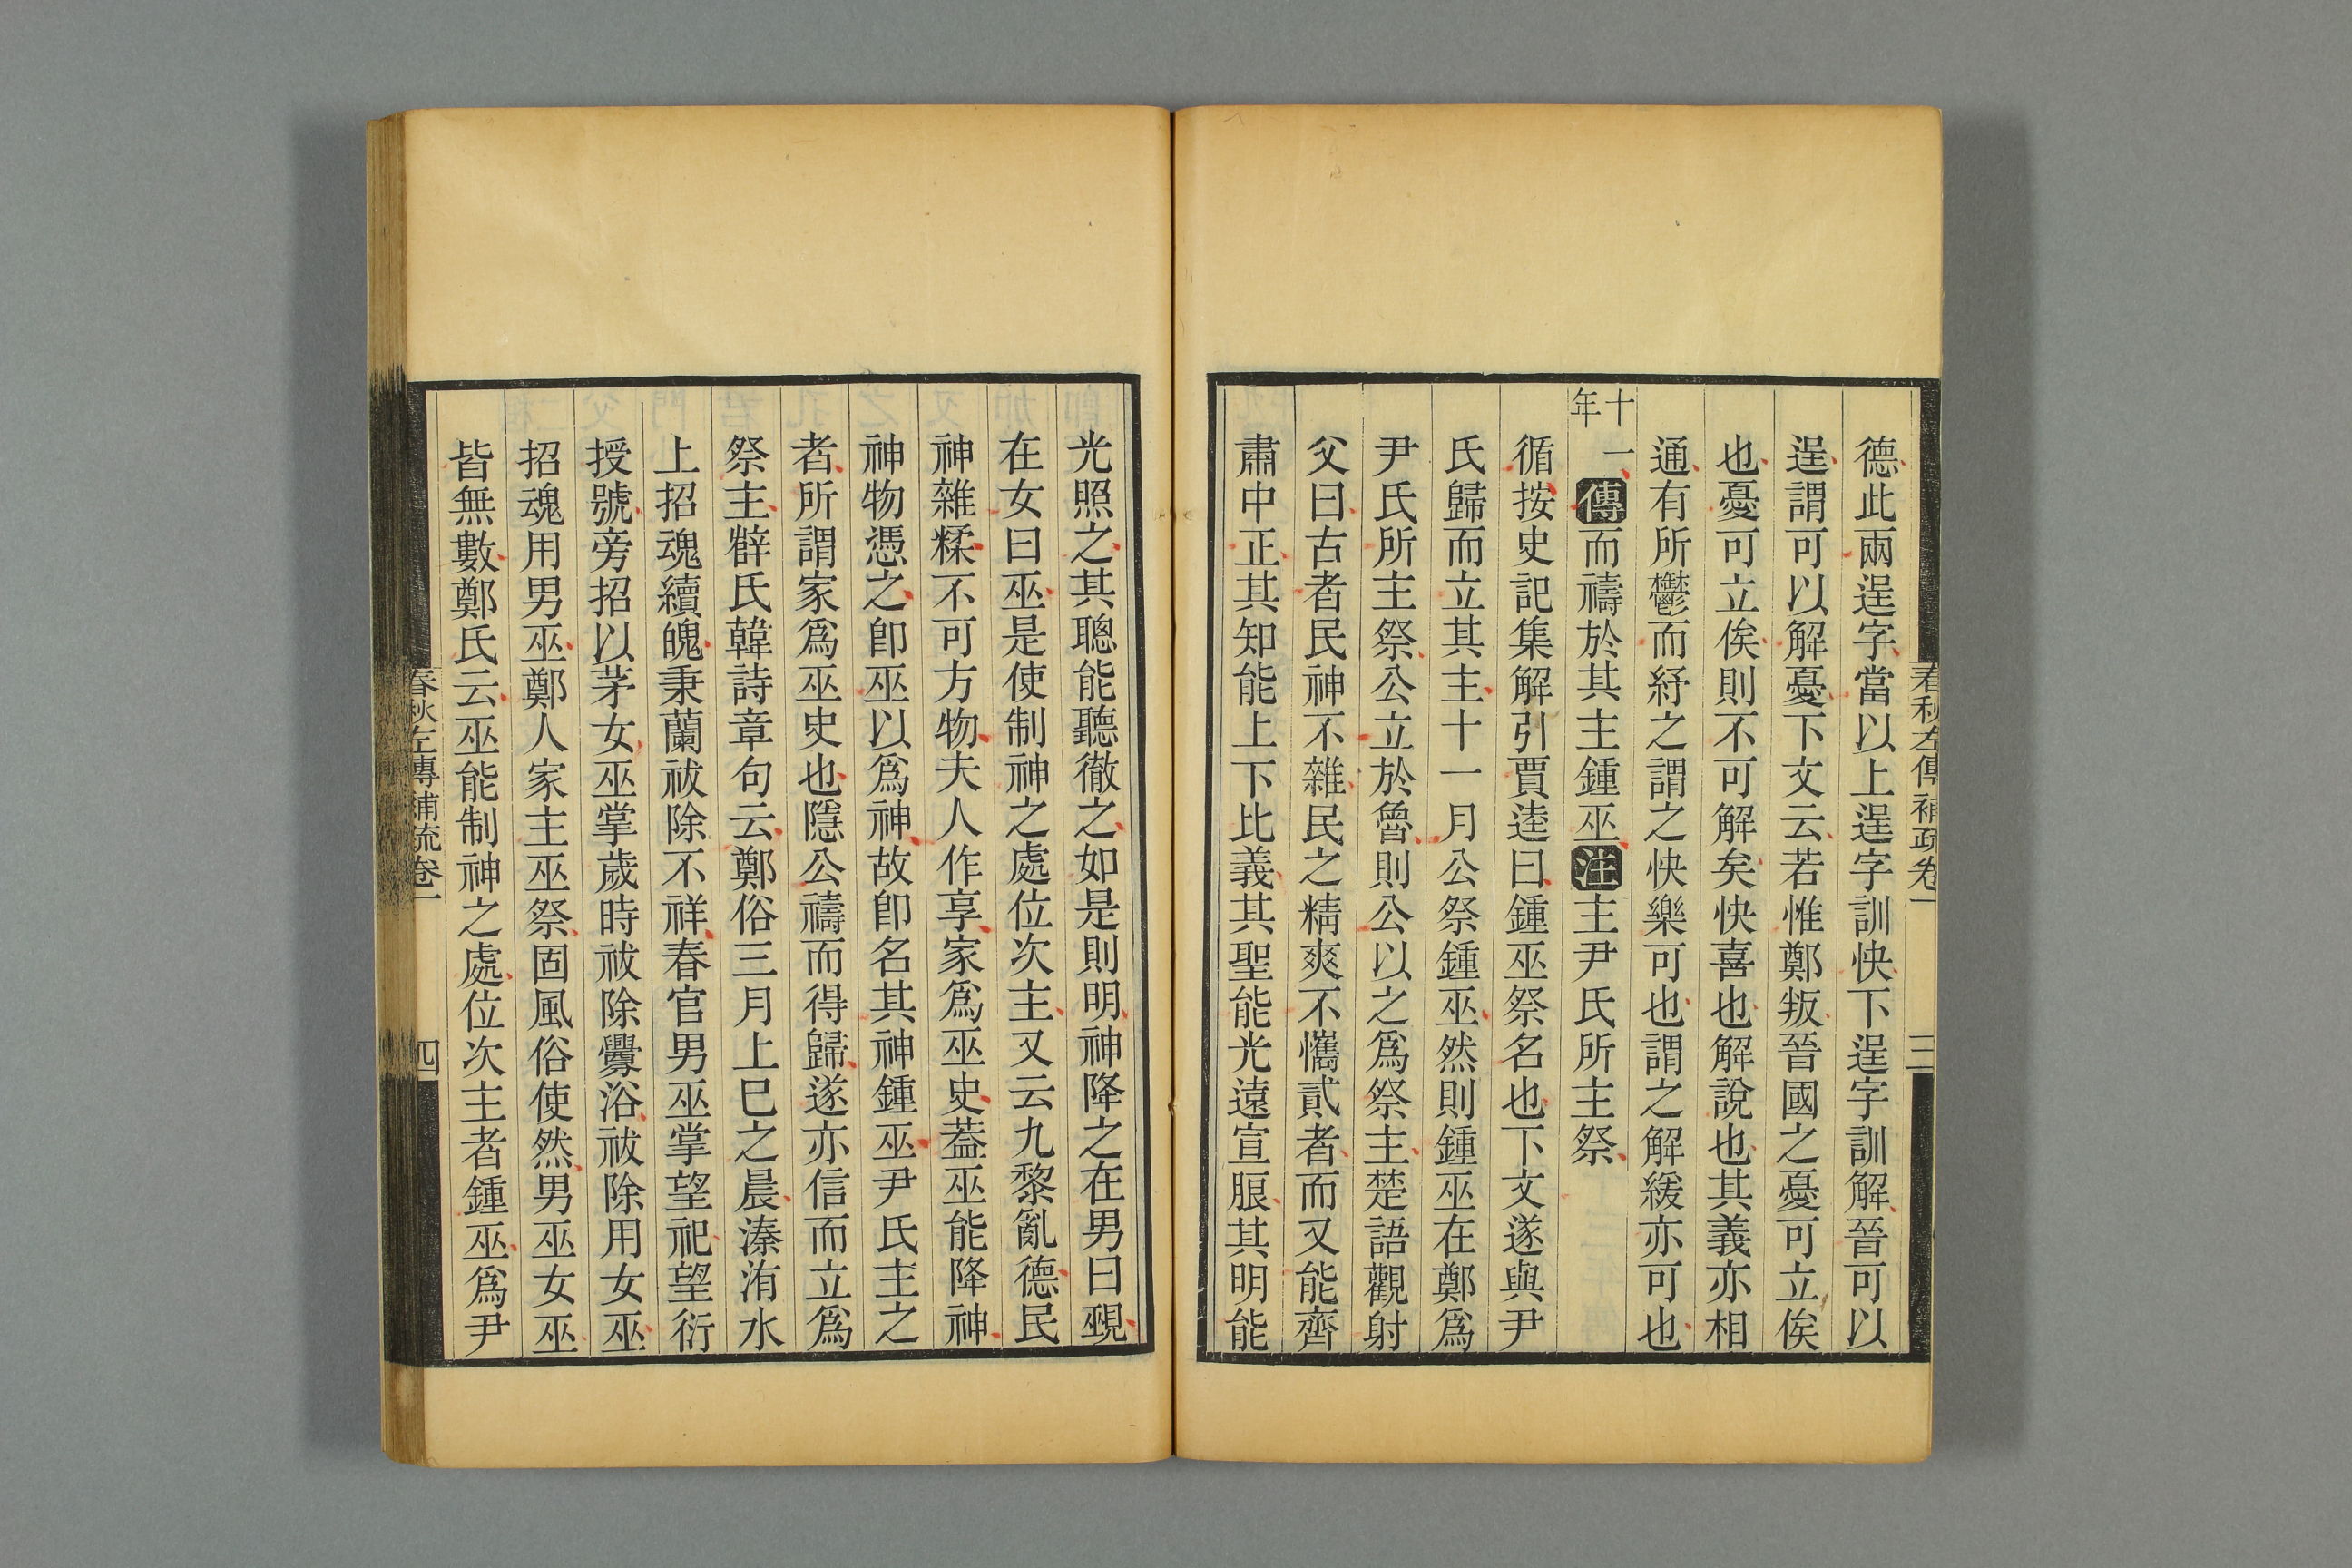 春秋左傳補疏卷一
三
德此兩逞字當以上逞字訓快下逞字訓解晉可以
逞謂可以解憂下文云若惟鄭叛晉國之憂可立俟
也憂可立俟則不可解矣快喜也解說也其義亦相
通有所鬱而紓之謂之快樂可也謂之解緩亦可也
十一年傳而禱於其主鍾巫注主尹氏所主祭
循按史記集解引賈逵曰鍾巫祭名也下文遂與尹
氏歸而立其主十一月公祭鍾巫然則鍾巫在鄭爲
尹氏所主祭公立於魯則公以之爲祭主楚語觀射
父曰古者民神不雜民之精爽不㩗貳者而又能齊
肅中正其知能上下比義其聖能光遠宣脤其明能
光照之其聰能聽徹之如是則明神降之在男曰覡
在女曰巫是使制神之處位次主又云九黎亂德民
神雜糅不可方物夫人作享家爲巫史葢巫能降神
神物憑之卽巫以爲神故卽名其神鍾巫尹氏主之
者所謂家爲巫史也隱公禱而得歸遂亦信而立爲
祭主辥氏韓詩章句云鄭俗三月上巳之晨溱洧水
上招魂續魄秉蘭祓除不祥春官男巫掌望祀望衍
授號旁招以茅女巫掌歲時祓除釁浴祓除用女巫
招魂用男巫鄭人家主巫祭固風俗使然男巫女巫
皆無數鄭氏云巫能制神之處位次主者鍾巫爲尹
春秋左傳補疏卷一
四